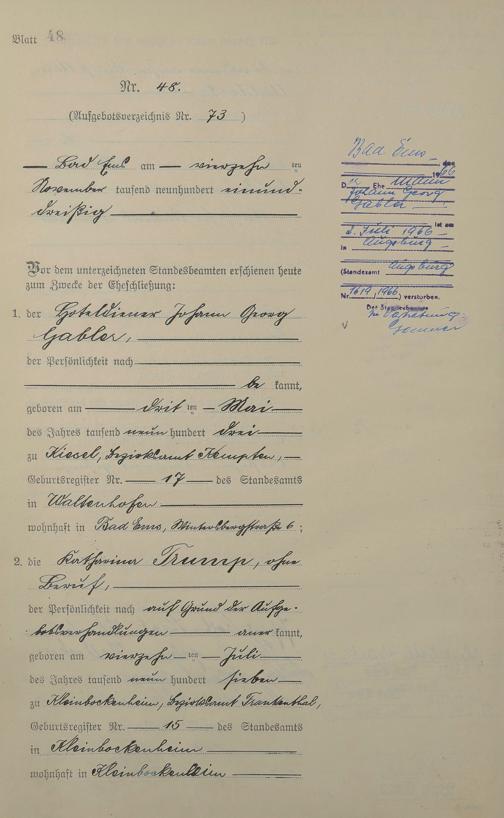 Blatt 48
Nr. 48.
(Aufgebotsverzeichnis Nr. 73)
Bad Ems am vierzehn ten
November tausend neunhundert einund-
dreißig
Vor dem unterzeichneten Standesbeamten erschienen heute
zum Zwecke der Eheschließung:
1. der Hoteldiener Johann Georg
Gabler,
der Persönlichkeit nach
be kannt,
geboren am drit ten Mai
des Jahres tausend neun hundert drei
zu Kiesel, Bezirksamt Kempten,
Geburtsregister Nr. 17 des Standesamts
in Waltenhofen
wohnhaft in Bad Ems, Wintersbergstraße 6;
2. die Katharina Trump, ohne
Beruf,
der Persönlichkeit nach auf Grund der Aufge-
botsverhandlungen aner kannt,
geboren am vierzehn ten Juli
des Jahres tausend neun hundert sieben
zu Kleinbockenheim, Bezirksamt Frankenthal,
Geburtsregister Nr. 15 des Standesamts
in Kleinbockenheim
wohnhaft in Kleinbockenheim
Bad Ems, den
1966
D Ehemann
Johann Georg
Gabler ist am
2. Juli 1966
in Augsburg
(Standesamt Augsburg
Nr. 1619/1966) verstorben.
Der Standesbeamte